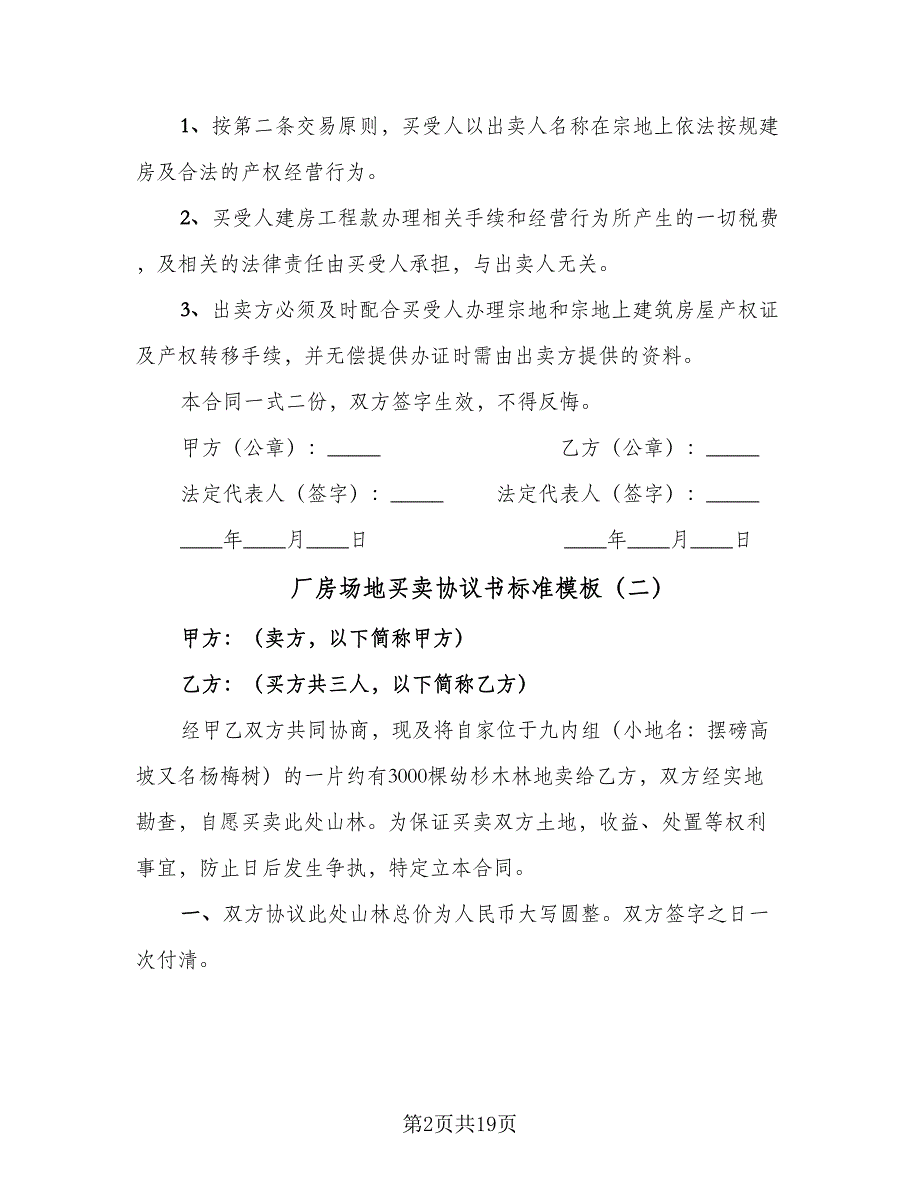 1、按第二条交易原则，买受人以出卖人名称在宗地上依法按规建
房及合法的产权经营行为。
2、买受人建房工程款办理相关手续和经营行为所产生的一切税费
，及相关的法律责任由买受人承担，与出卖人无关。
3、出卖方必须及时配合买受人办理宗地和宗地上建筑房屋产权证
及产权转移手续，并无偿提供办证时需由出卖方提供的资料。
本合同一式二份，双方签字生效，不得反悔。
甲方（公章）：_____ 乙方（公章）：_____
法定代表人（签字）：_____ 法定代表人（签字）：_____
____年____月____日 ____年____月____日
厂房场地买卖协议书标准模板（二）
甲方：（卖方，以下简称甲方）
乙方：（买方共三人，以下简称乙方）
经甲乙双方共同协商，现及将自家位于九内组（小地名：摆磅高
坡又名杨梅树）的一片约有3000棵幼杉木林地卖给乙方，双方经实地
勘查，自愿买卖此处山林。为保证买卖双方土地，收益、处置等权利
事宜，防止日后发生争执，特定立本合同。
一、双方协议此处山林总价为人民币大写圆整。双方签字之日一
次付清。
第2页共19页